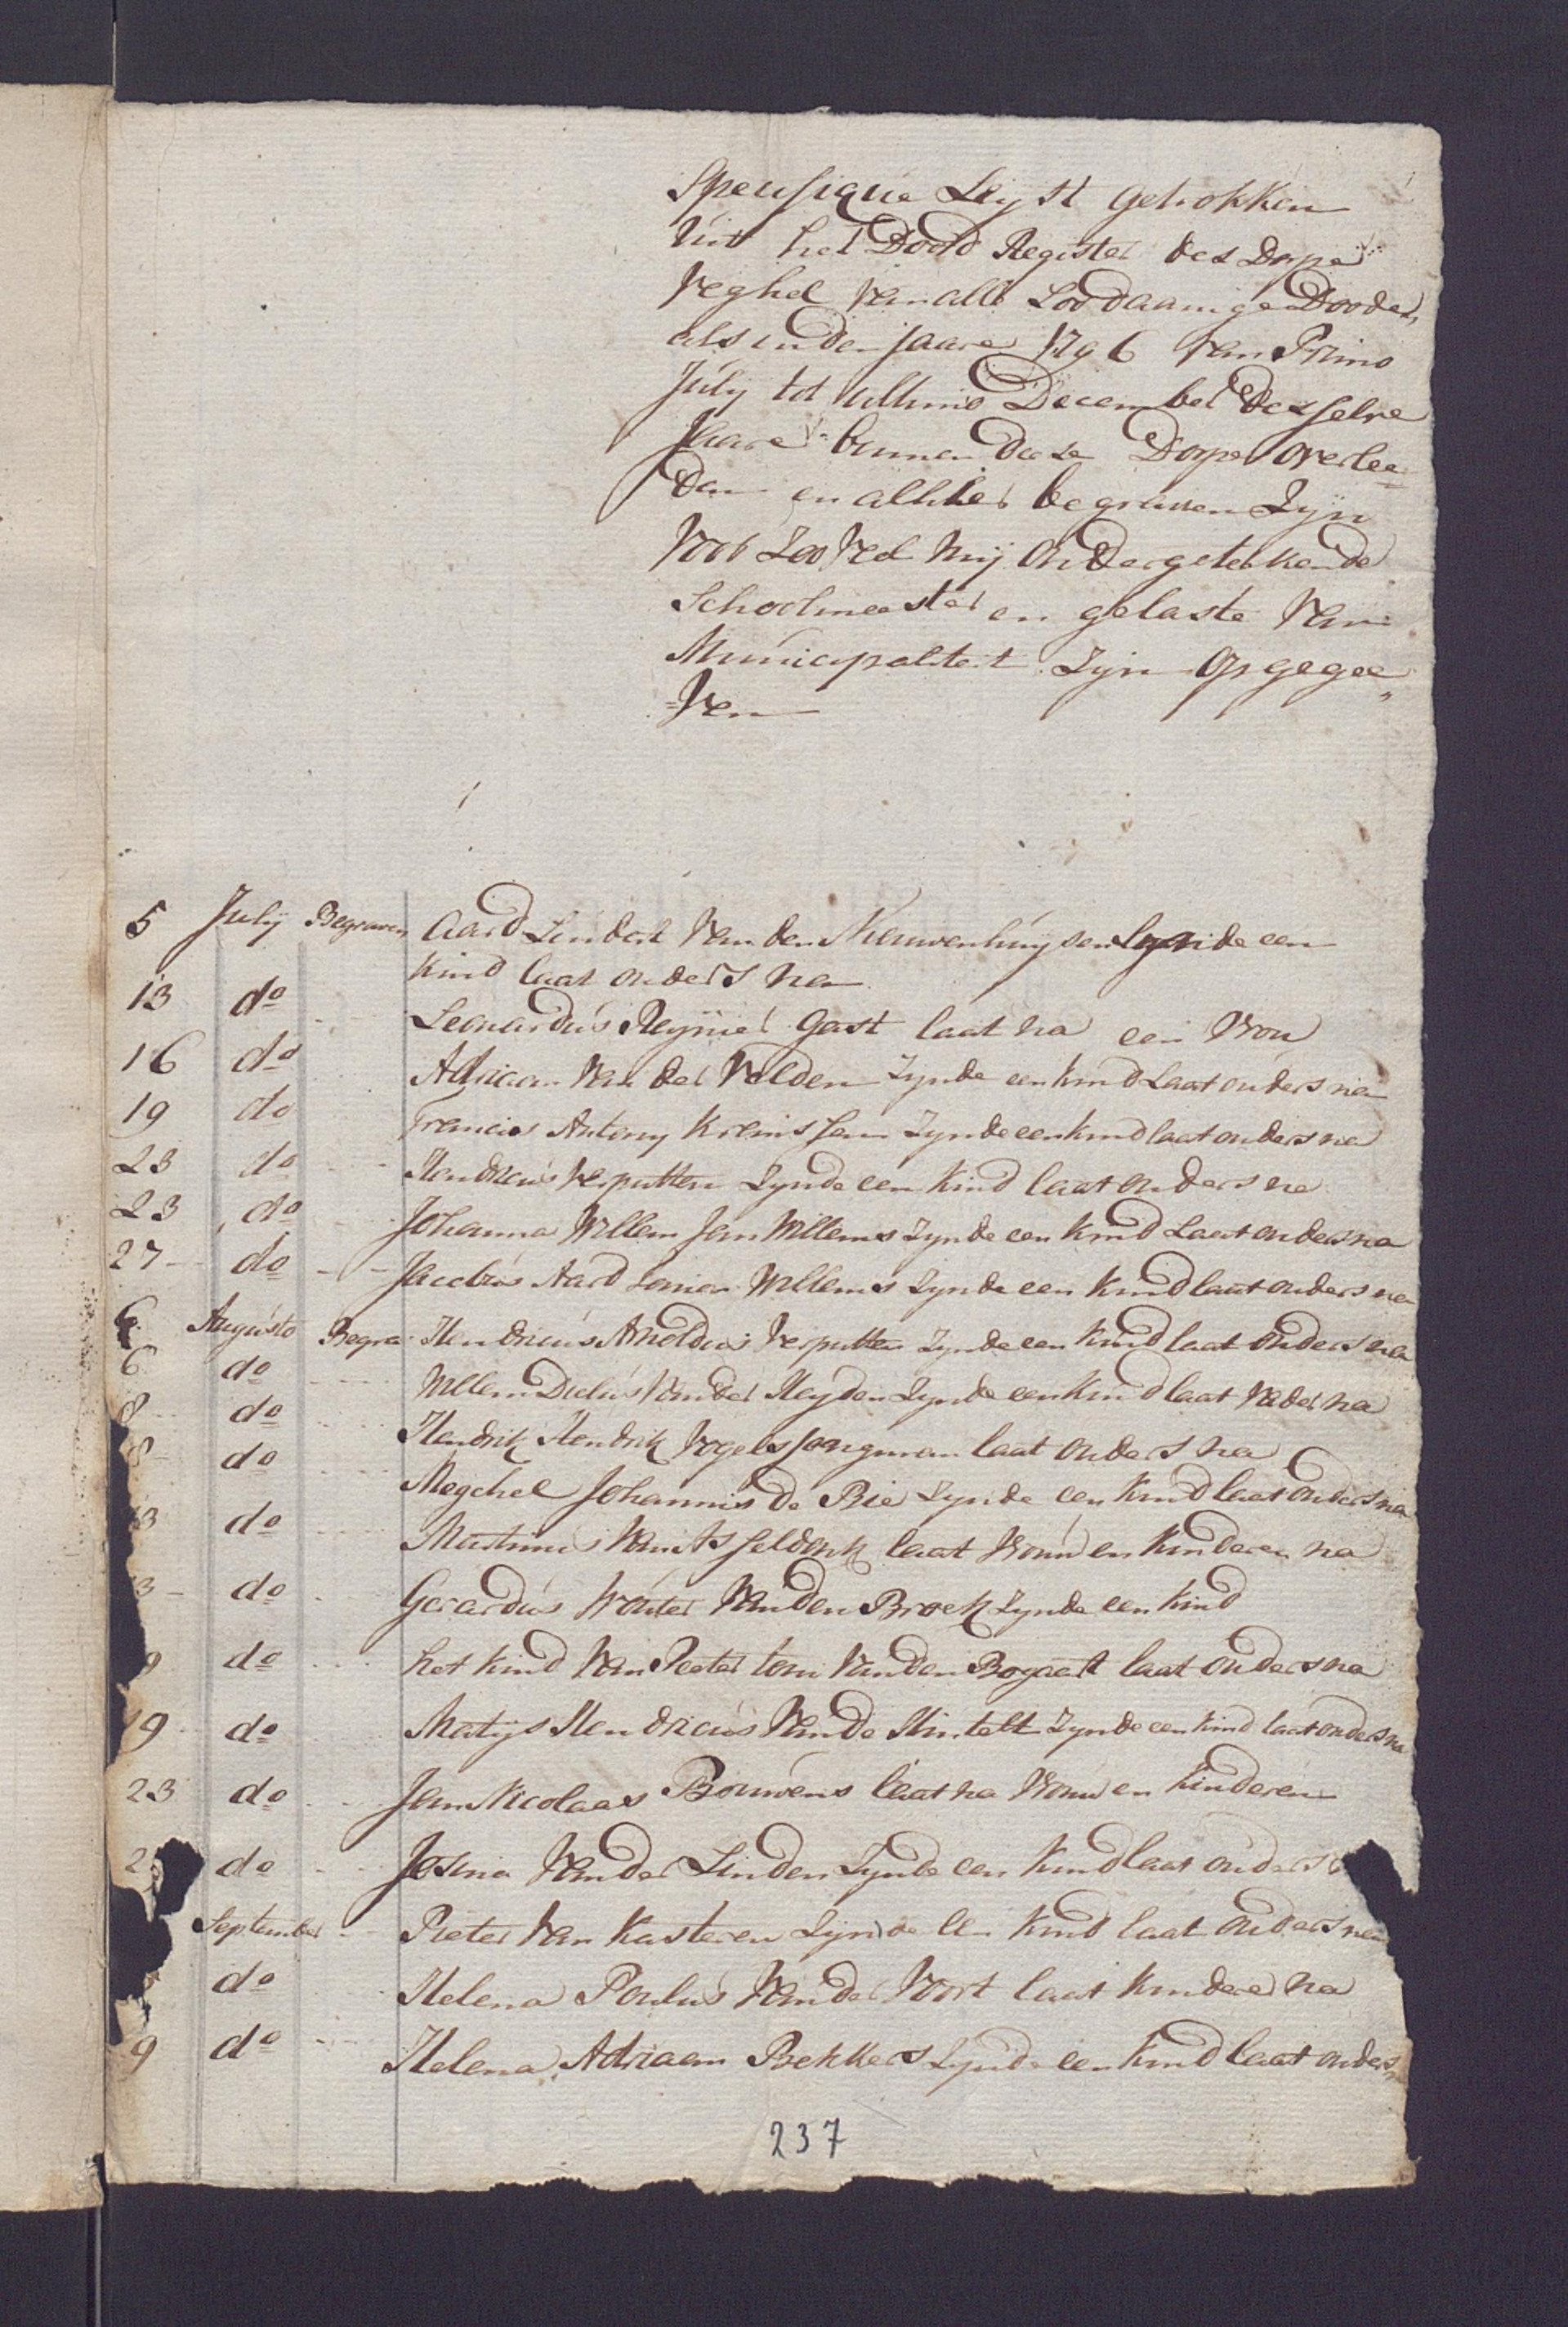 Specifique Leijst getrokken
Uit het Dood Register des Dorps
Veghel van alle Soodaanige Dooden
als in den jaare 1796 van Primo
July tot ultimo December desselve
Jaare binnen deese Dorpe overlee-
den en alhier begraven Zijn
voor Zoo veel mij ondergetekende
Schoolmeester en gelaste van
Municipaliteit Zijn opgegee„
=ven
5 July Begraven Aard Lendert van den Nieuwenhuijsen Zynde een
kind laat onders na
13 do Leonardus Reijnier Gast laat na een Vrou
16 do Adriaan van der Velden Zynde een kind Laat onders na
19 do Francis Antony Zynde een kind laat onders na
23 do Hendricus Verputten Zynde een kind laat onders na
23 do Johanna Willem Jan Willems Zynde een kind Laat onders na
27 do Jacobus Aard Willems Zynde een kind laat onders na
6 Augusto Begra Hendricus Arnoldus Verputten Zynde een kind laat onders na
6 do Willem van der Heyden Zynde een kind laat Vader na
8 do Hendrik Hendrik Vogels Jongman laat onders na
8 do Megchel Johannis de Bie Zynde een kind laat onders na
13 do Martinus van Asseldonk laat Vrouw en kinderen na
13 do Gerardus Wouter van den Broek Zynde een kind
19 do het kind van Peeter van den Bogaert laat onders na
19 do Matijs Hendricus van de Hintelt Zynde een kind laat onders na
23 do Jan Nicolaas Bouwens laat na Vrouw en kinderen
2 do Josina van der Linden Zynde een kind laat onders
September Pieter van Kasteren Zijnde een kind laat onders na
do Helena Poulus van der Voort laat kinderen na
9 do Helena Adriaan Bekkers Zynde een kind laat onders
237